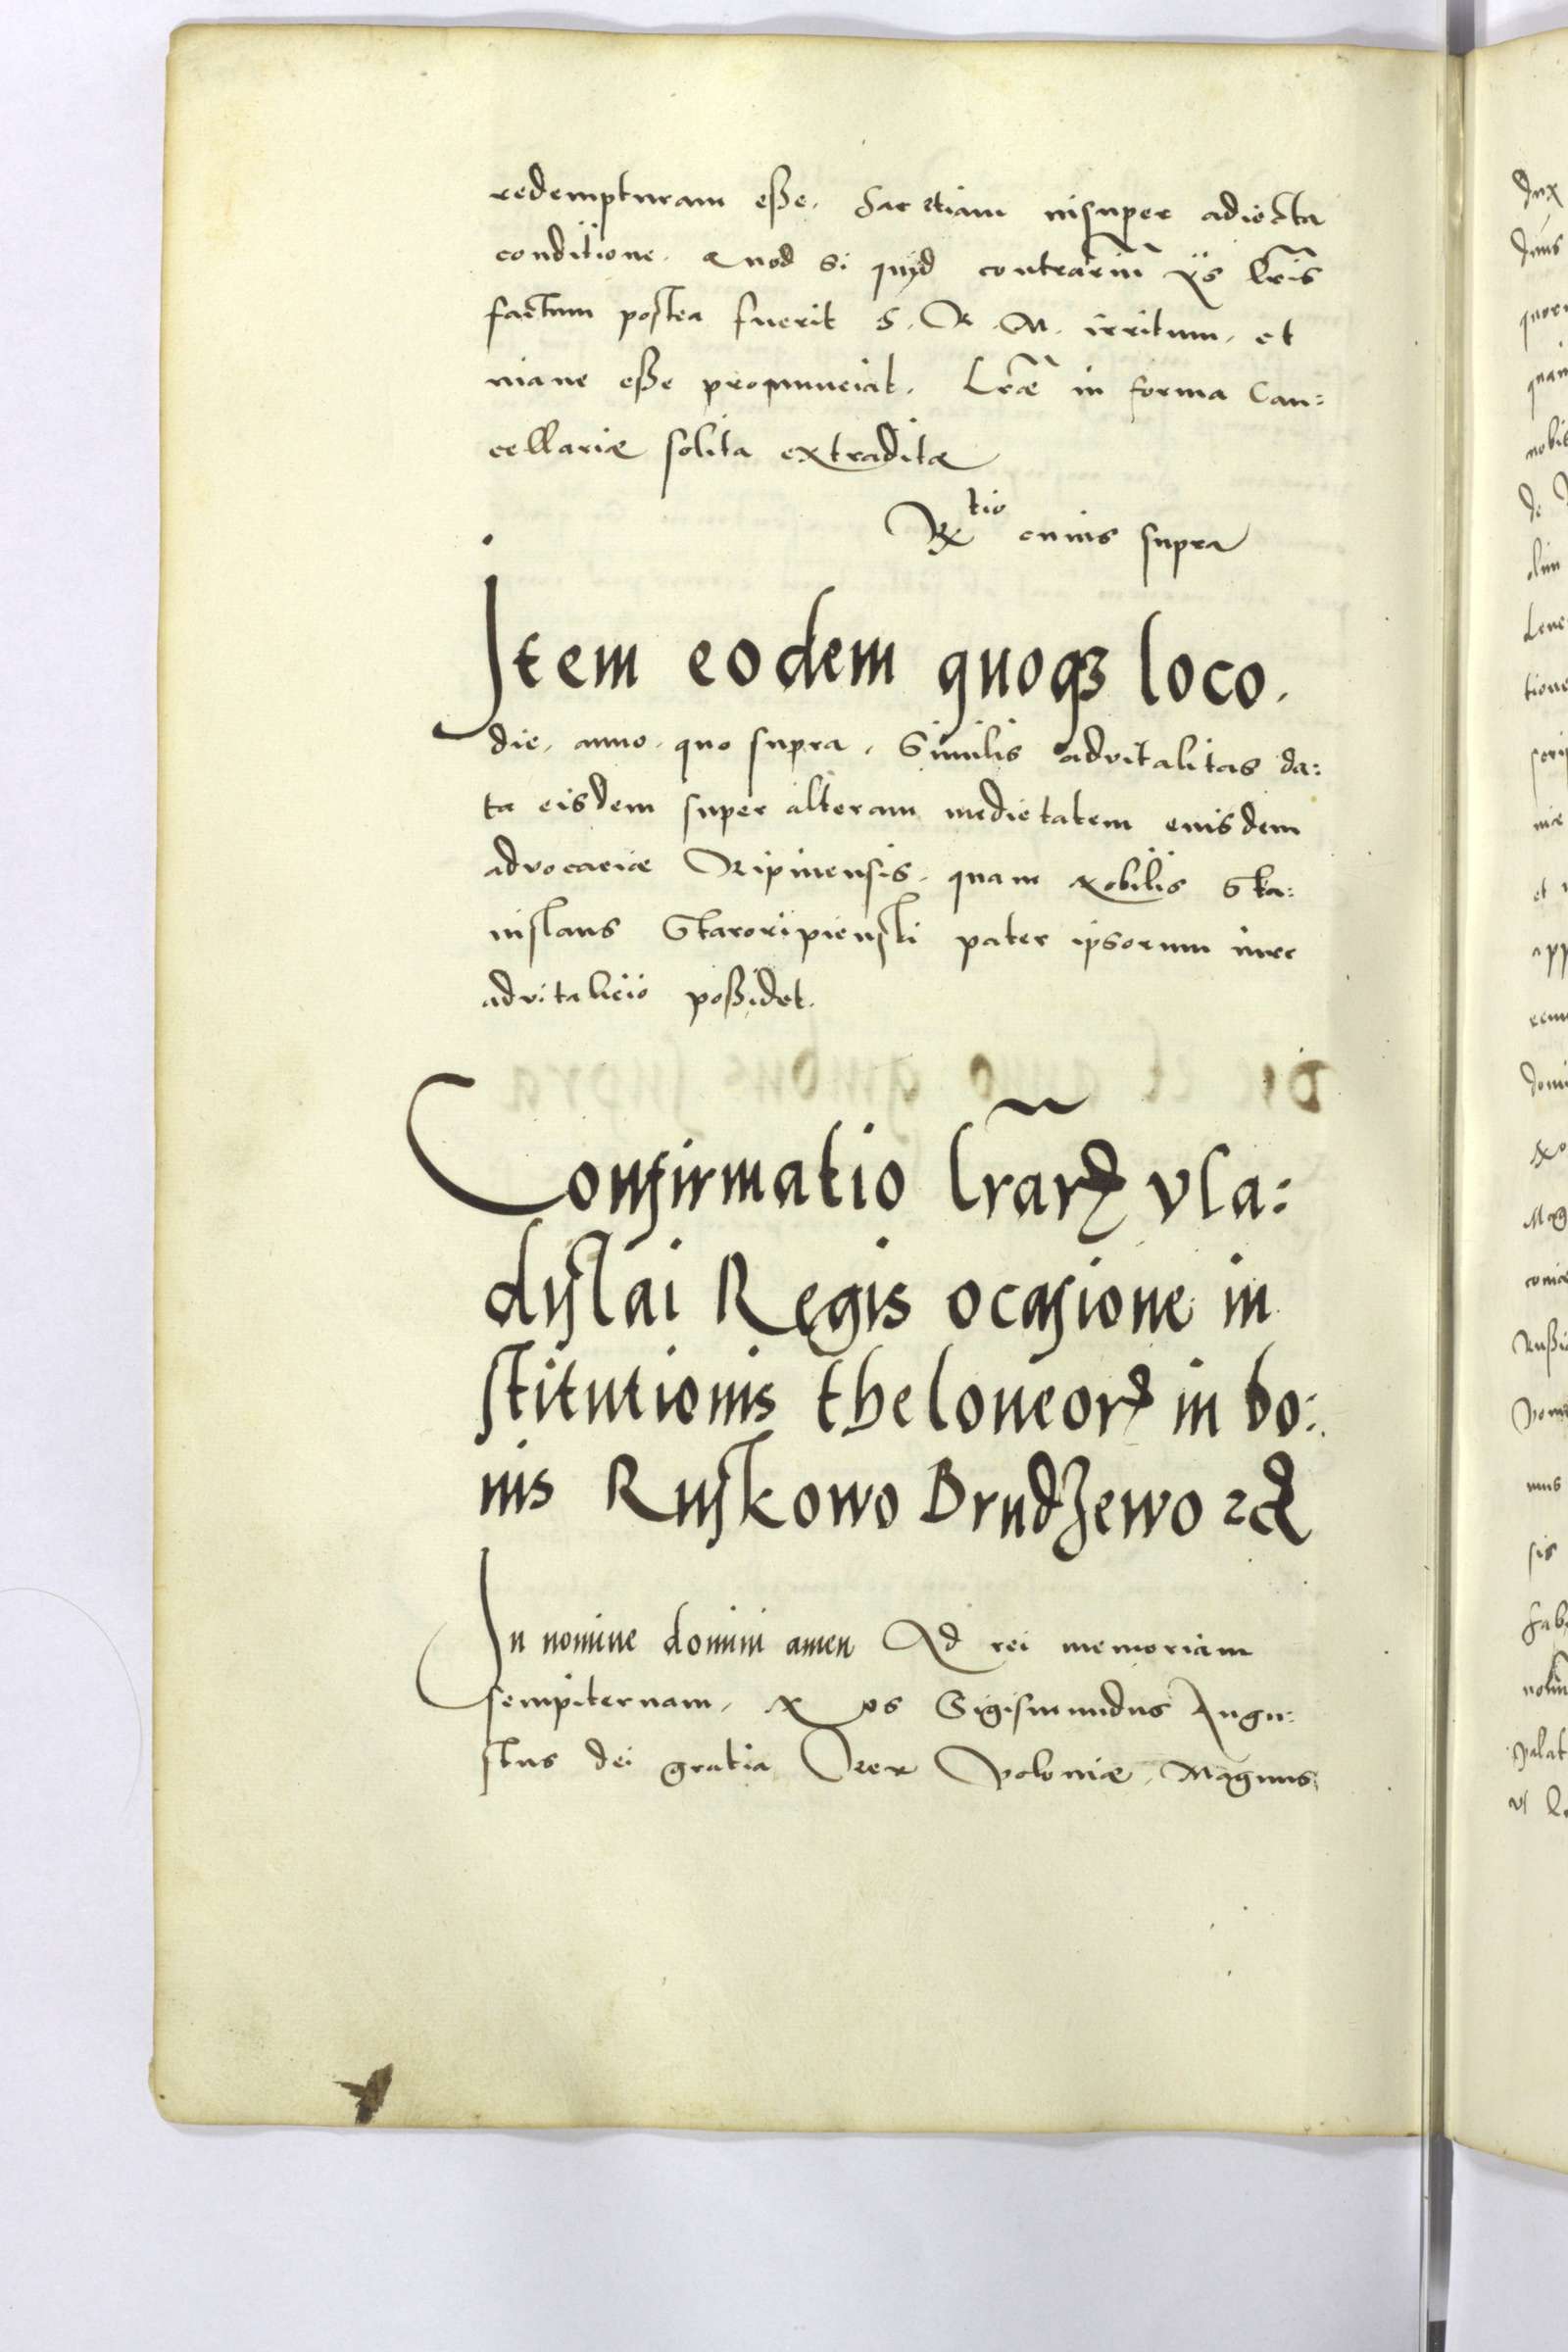 redempturam esse. Hac etiam insuper adiecta
conditione. Quod si quid contrariũ ijs lr̃is
factum postea fuerit S. R. M. irritum, et
inane esse pronunciat. Lr̃æ in forma Can:
cellariæ solita extraditæ
Rtio cuius supra
Item eodem quoqʒ loco.
die, anno, quo supra, Similis advitalitas da:
ta eisdem super alteram medietatem eiusdem
advocaciæ Ripinensis, quam Nobilis Sta:
nislaus Staroripienski pater ipsorum iure
advitalicio possidet.
Confirmatio lr̃arꝝ Vla:
dislai Regis ocasione in
stitutionis theloneorꝝ in bo:
nis Ruskowo Brudzewo ꝛc
In nomine domini amen Ad rei memoriam
sempiternam. Nos Sigismundus Augu:
stus dei gratia Rex Poloniæ, Magnus
dux
quam
nobis
de
olim
tione
et
sis